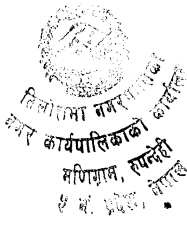 तिलोत्तमा नगरपालिका
नगर कार्यपालिकाको कार्यालय
मणिग्राम, रुपन्देही
५ नं. प्रदेश, नेपाल